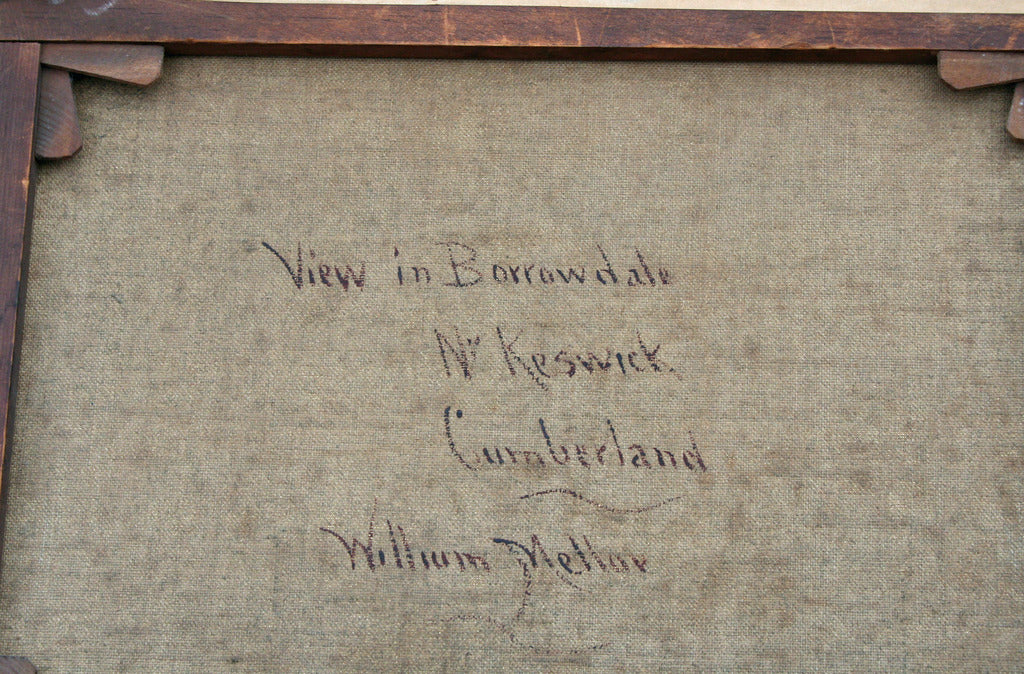 View in Borrowdale
Nr Keswick.
Cumberland
William Mellor